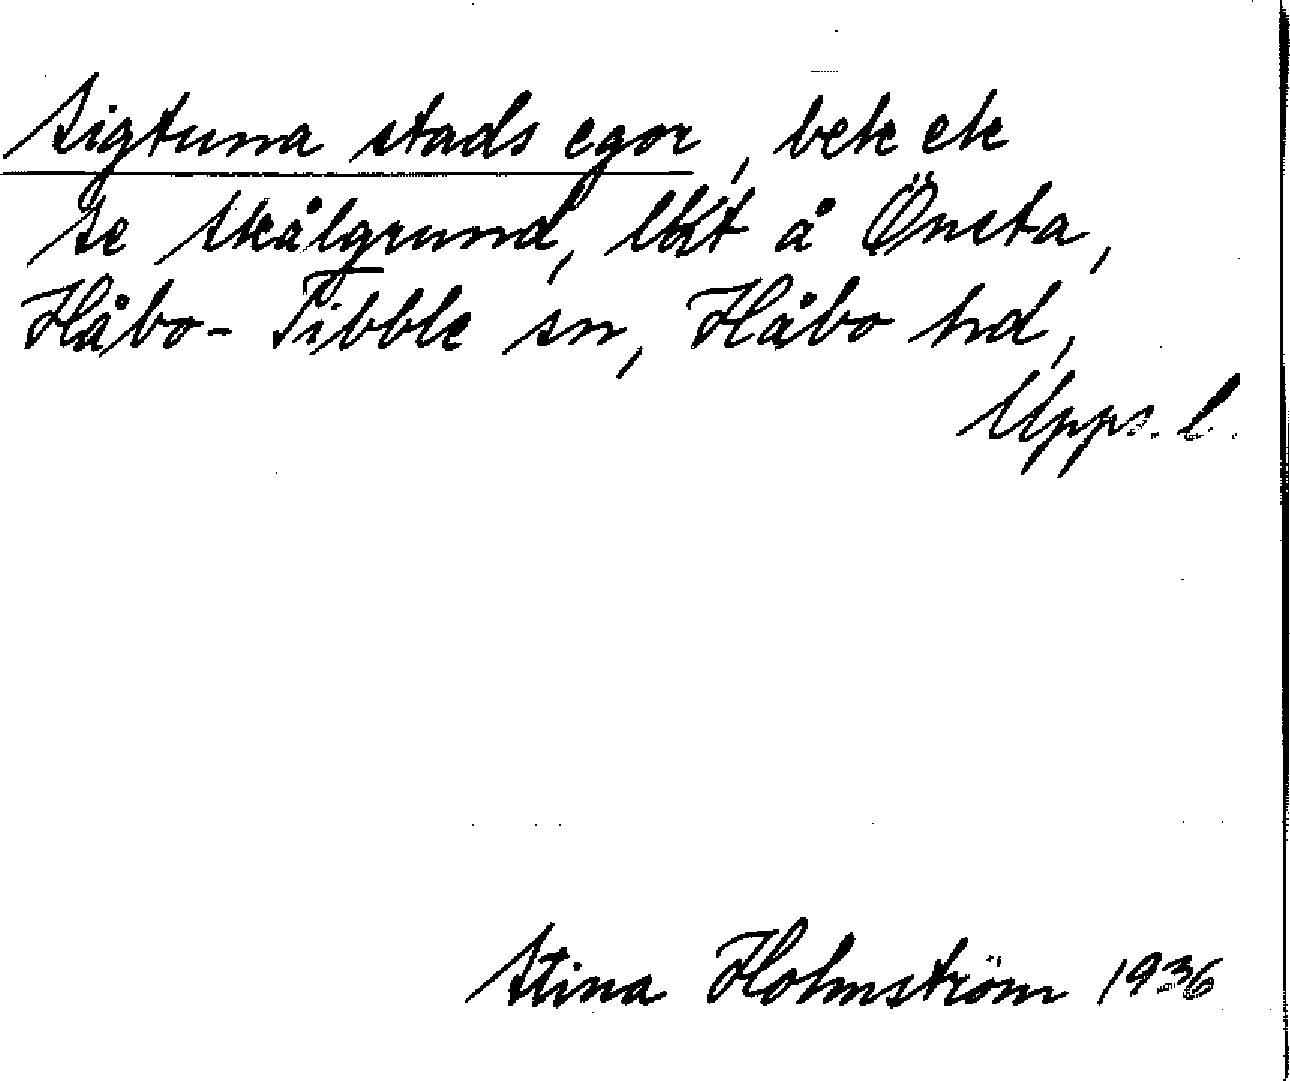 Sigtuna stads egor, bek ek
se Skålgrund, Utkt å Önsta,
Håbo-Tibble sn, Håbo hd,
Upps. l.
Stina Holmström 1936